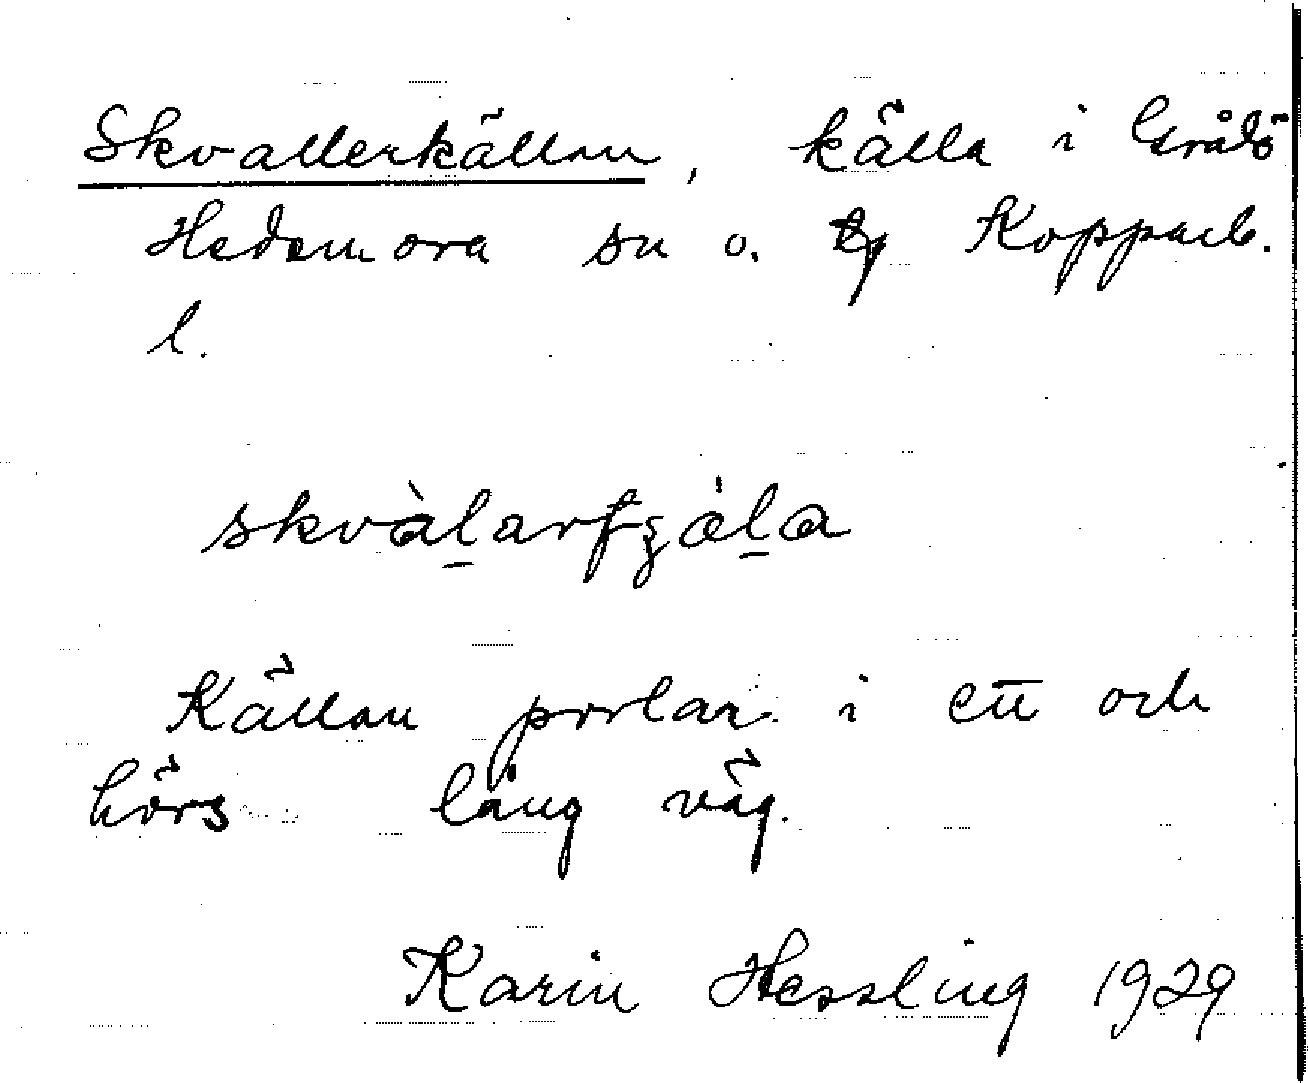 Skvallerkällan, källa i Grådö
Hedemora sn o. tg Kopparb.
l.
skvàl̠arfʒäl̠a
Källan porlar i ett och
hörs lång väg.
Karin Hessling 1929